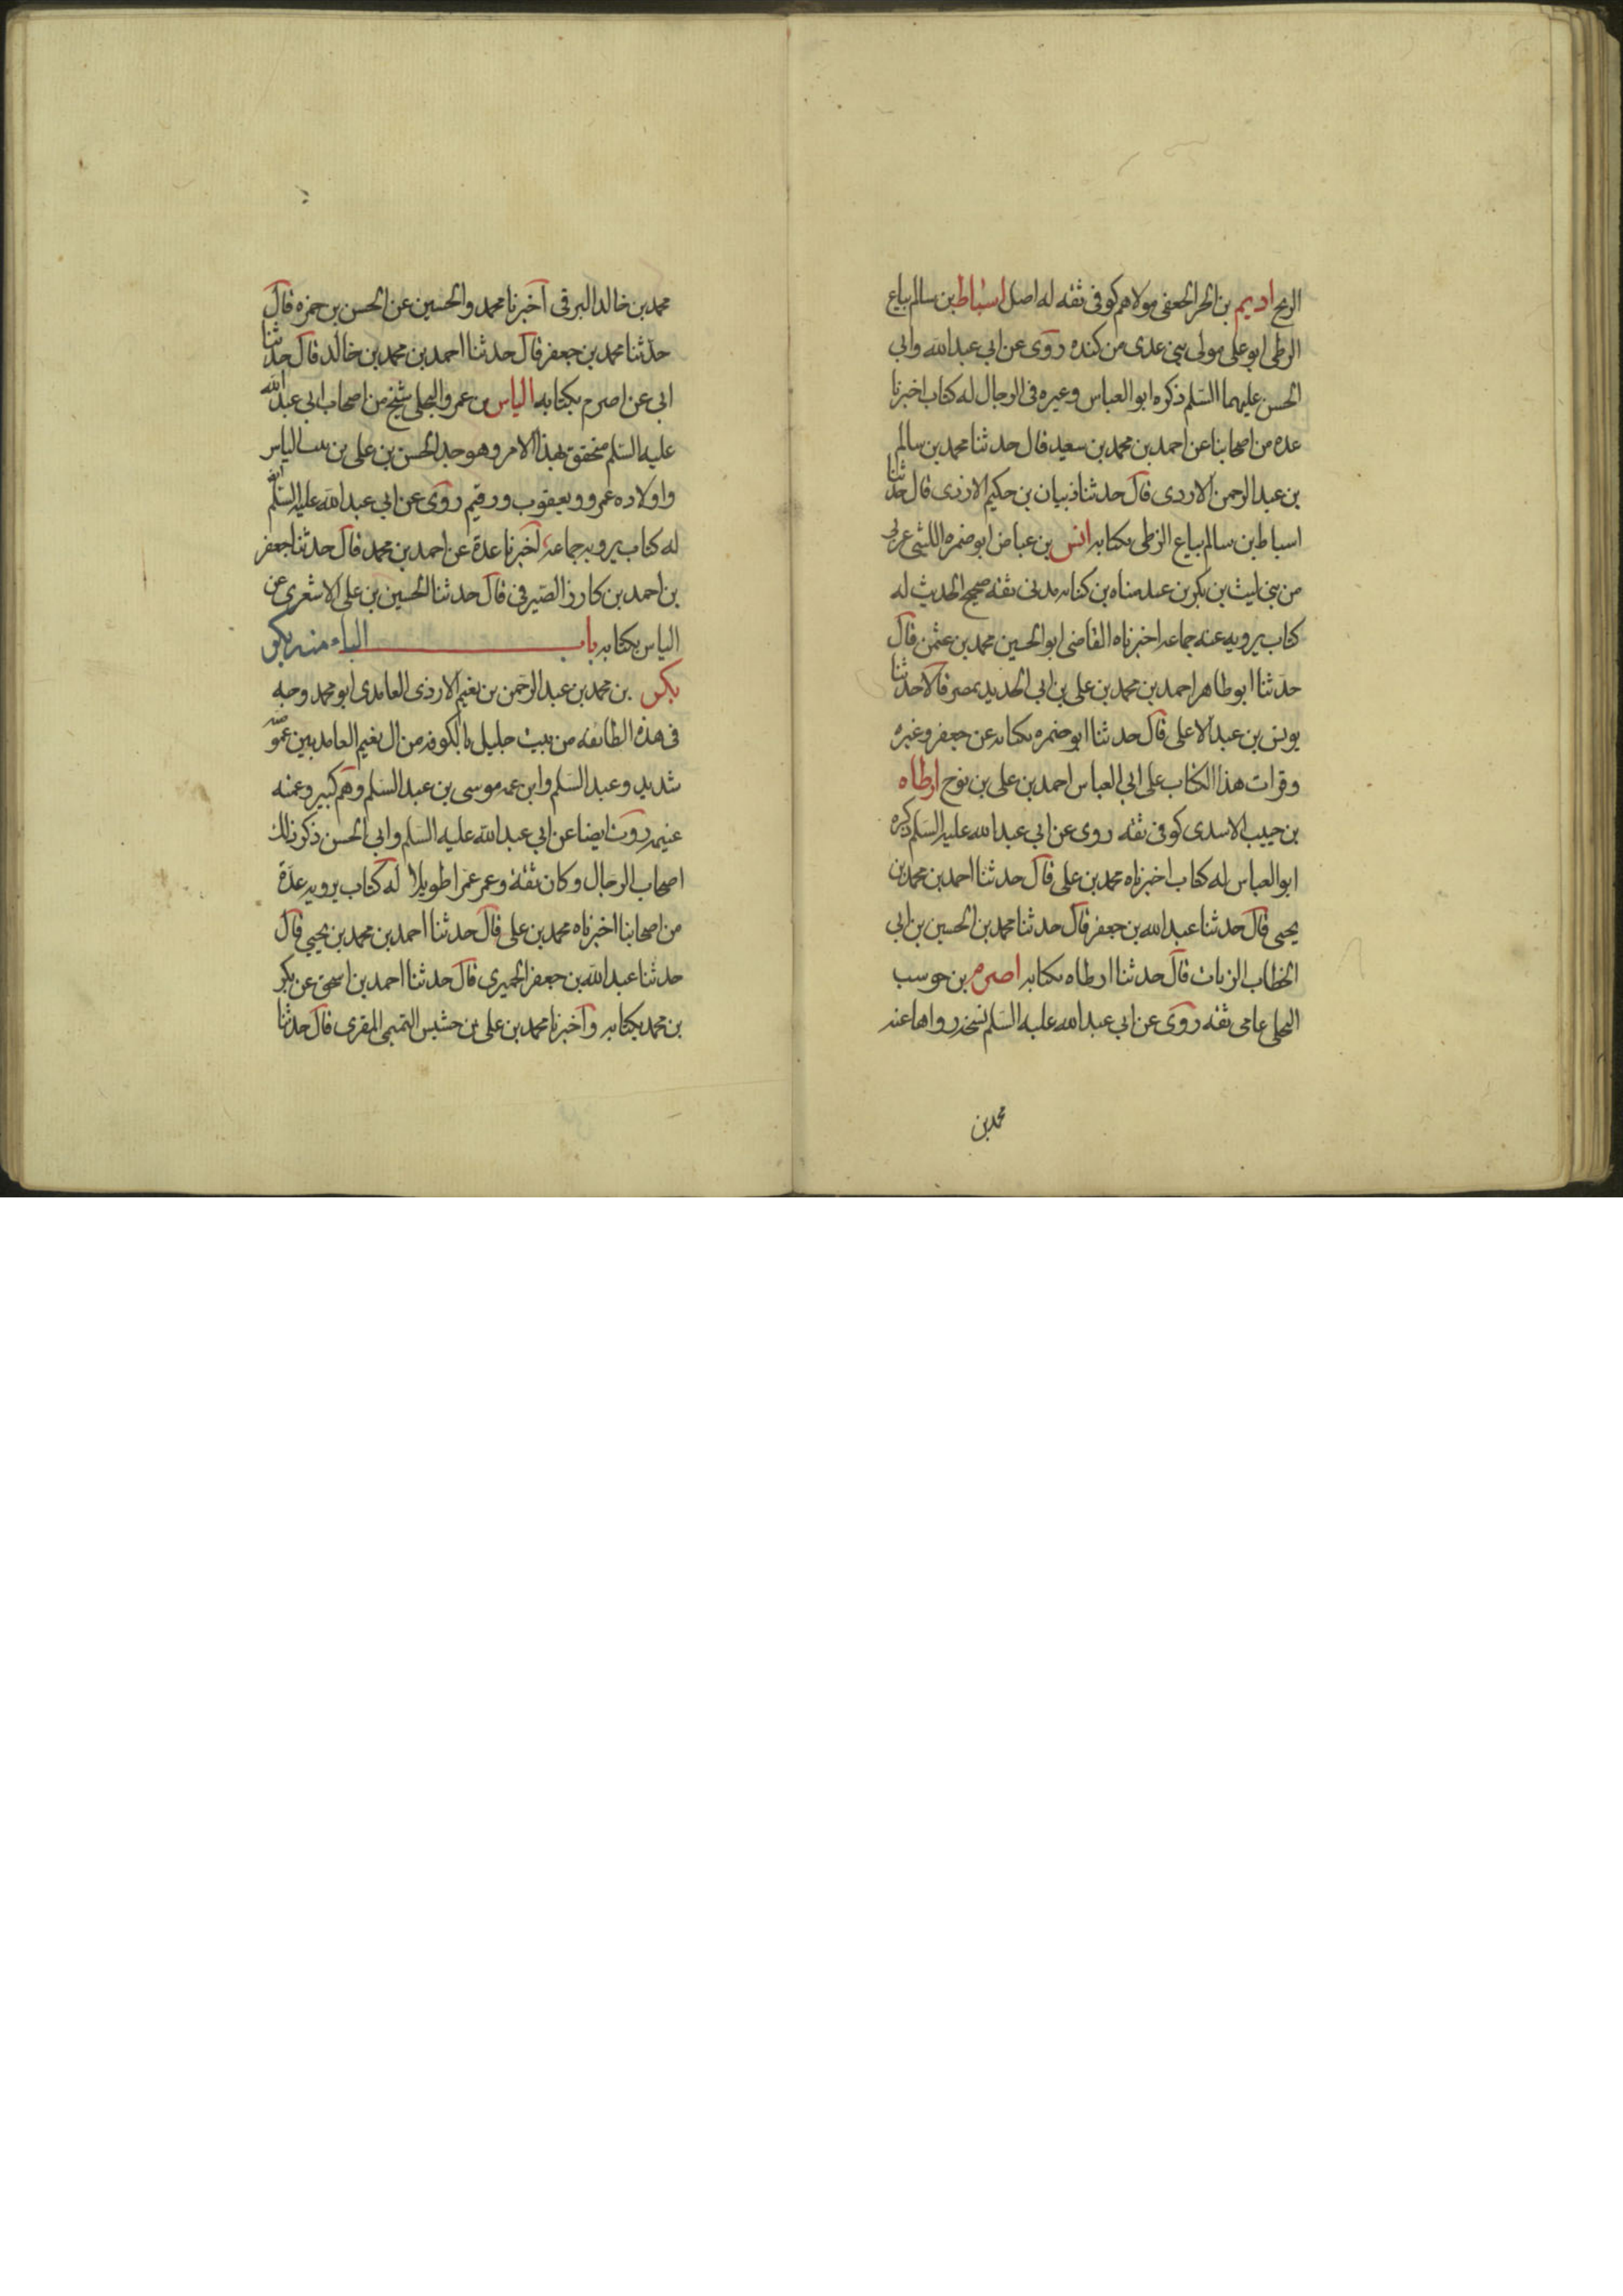 الربيع اديم بن الحر الجعفى مولاهم كوفى ثقه له اصل اسباط بن سالم بياع
الزطى ابو على مولى بني عدى من كنده روى عن ابي عبدالله وابي
الحسن عليهما السلم ذكره ابو العباس وغيره فى الرجال له كتاب اخبرنا
عده من اصحابنا عن احمد بن محمد بن سعيد قال حدثنا محمد بن سالم
بن عبد الرحمن الازدى قال حدثنا ذبيان بن حكيم الازدى قال حدثنا
اسباط بن سالم بياع الزطى بكتابه انس بن عياض ابو ضمره الليثى عربى
من بنى ليث بن بكر بن عبد مناه بن كنانه مدنى ثقه صحيح الحديث له
كتاب يرويه عنه جماعه اخبرناه القاضى ابو الحسين محمد بن عثمن قال
حدثنا ابو طاهر احمد بن محمد بن على بن ابي الحديد بمصر قالا حدثنا
يونس بن عبد الاعلى قال حدثنا ابو ضمره بكتابه عن جعفر وغيره
وقرات هذا الكتاب على ابي العباس احمد بن على بن نوح ارطاه
بن حبيب الاسدى كوفى ثقه روى عن ابي عبد الله عليه السلم ذكره
ابو العباس له كتاب اخبرناه محمد بن على قال حدثنا احمد بن محمد بن
يحيى قال حدثنا عبد الله بن جعفر قال حدثنا محمد بن الحسين بن ابي
الخطاب الزيات قال حدثنا ارطاه بكتابه اصرم بن حوسب
البجلى عامى ثقه روى عن ابي عبد الله عليه السلم نسخه رواها عنه
محمد بن
محمد بن خالد البرقى اخبرنا محمد والحسين عن الحسن بن حمزه قال
حدثنا محمد بن جعفر قال حدثنا احمد بن محمد بن خالد قال حدثنا
ابى عن اصرم بكتابه الياس بن عمرو البجلى شيخ من اصحاب ابي عبد الله
عليه السلم متحقق بهذا الامر وهو جد الحسن بن على بن بنت الياس
واولاده عمرو ويعقوب ورقيم روى عن ابي عبد الله عليه السلم
له كتاب يرويه جماعة اخبرنا عدة عن احمد بن محمد قال حدثنا جعفر
بن احمد بن كازر الصيرفى قال حدثنا الحسين بن على الاشعرى عن
الياس بكتابه باب الباء منه بكر
بكر بن محمد بن عبد الرحمن بن نعيم الازدى الغامدى ابو محمد وجه
فى هذه الطائفه من بيت جليل بالكوفه من ال نعيم الغامديين عمومته
شديد وعبد السلم وابن عمه موسى بن عبد السلم وهم كثير وعمته
غنيمه روت ايضا عن ابي عبد الله عليه السلم وابي الحسن ذكر ذلك
اصحاب الرجال وكان ثقة وعمر عمرا طويلا له كتاب يرويه عدة
من اصحابنا اخبرناه محمد بن على قال حدثنا احمد بن محمد بن يحيى قال
حدثنا عبد الله بن جعفر الحميرى قال حدثنا احمد بن اسحق عن بكر
بن محمد بكتابه واخبرنا محمد بن على بن خشيش التميمى المقرى قال حدثنا